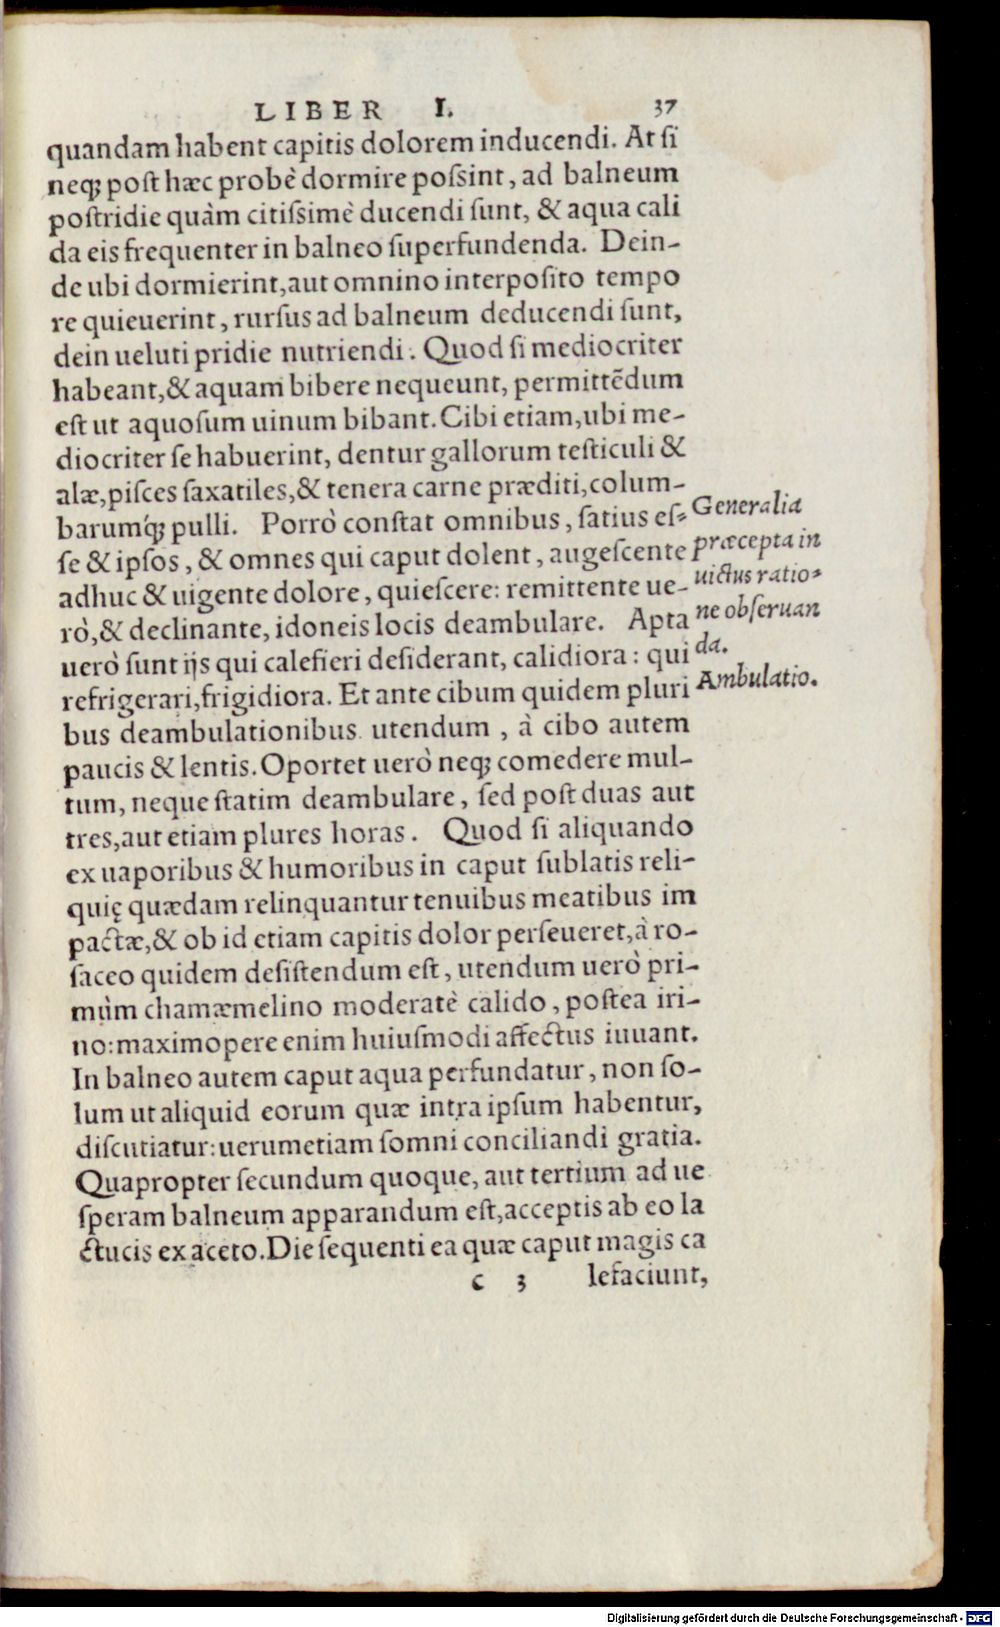 LIBER I. 37
quandam habent capitis dolorem inducendi. At si
neq; post hæc probè dormire possint, ad balneum
postridie quàm citissimè ducendi sunt, & aqua cali
da eis frequenter in balneo superfundenda. Dein-
de ubi dormierint, aut omnino interposito tempo
re quieuerint, rursus ad balneum deducendi sunt,
dein ueluti pridie nutriendi. Quod si mediocriter
habeant, & aquam bibere nequeunt, permittẽdum
est ut aquosum uinum bibant. Cibi etiam, ubi me-
diocriter se habuerint, dentur gallorum testiculi &
alæ, pisces saxatiles, & tenera carne præditi, colum-
barumq́; pulli. Porrò constat omnibus, satius es-
se & ipsos, & omnes qui caput dolent, augescente
adhuc & uigente dolore, quiescere: remittente ue-
rò, & declinante, idoneis locis deambulare. Apta
uerò sunt ijs qui calefieri desiderant, calidiora: qui
refrigerari, frigidiora. Et ante cibum quidem pluri
bus deambulationibus utendum, à cibo autem
paucis & lentis. Oportet uerò neq; comedere mul-
tum, neque statim deambulare, sed post duas aut
tres, aut etiam plures horas. Quod si aliquando
ex uaporibus & humoribus in caput sublatis reli-
quię quædam relinquantur tenuibus meatibus im
pactæ, & ob id etiam capitis dolor perseueret, à ro-
saceo quidem desistendum est, utendum uerò pri-
mùm chamæmelino moderatè calido, postea iri-
no: maximopere enim huiusmodi affectus iuuant.
In balneo autem caput aqua perfundatur, non so-
lum ut aliquid eorum quæ intra ipsum habentur,
discutiatur: uerumetiam somni conciliandi gratia.
Quapropter secundum quoque, aut tertium ad ue
speram balneum apparandum est, acceptis ab eo la
ctucis ex aceto. Die sequenti ea quæ caput magis ca
c 3 lefaciunt,
Generalia
præcepta in
uictus ratio-
ne obseruan
da.
Ambulatio.
Digitalisierung gefördert durch die Deutsche Forschungsgemeinschaft - DFG